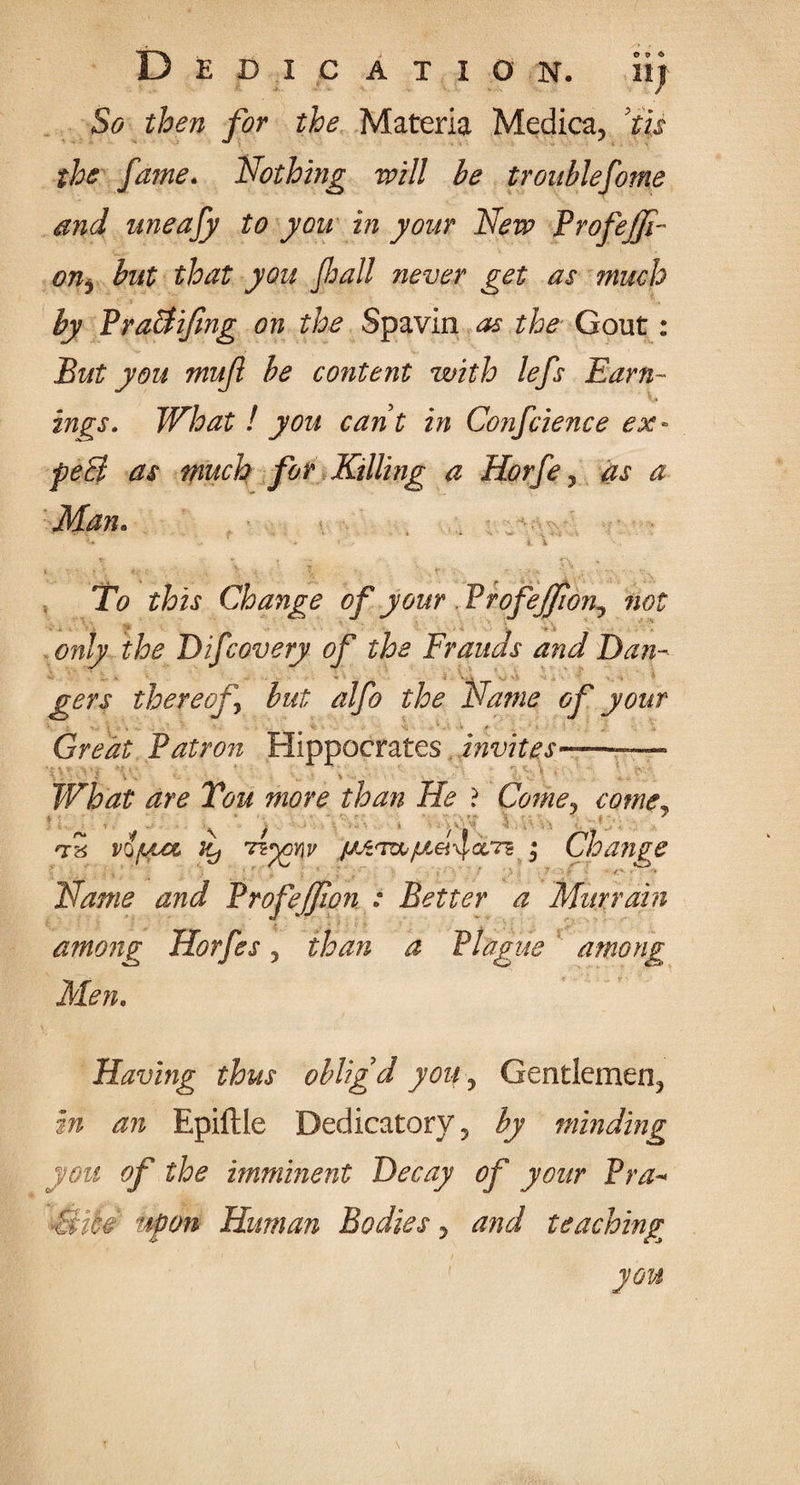 DEDICATION. iij
So then for the Materia Medica, 'tis
the ſame. Nothing will be troubleſome
and uneaſy to you in your New Profeſſi-
on, but that you ſhall never get as much
by Practiſing on the Spavin as the Gout :
But you muſt be content with leſs Earn-
ings. What ! you can't in Conſcience ex-
pect as much for Killing a Horſe, as a
Man.
To this Change of your Profeſſion, not
only the Diſcovery of the Frauds and Dan-
gers thereof, but alſo the Name of your
Great Patron Hippocrates invites———
What are You more than He ? Come, come,
Change
Name and Profeſſion : Better a Murrain
among Horſes, than a Plague among
Men.
Having thus oblig'd you, Gentlemen,
in an Epiſtle Dedicatory, by minding
you of the imminent Decay of your Pra-
ctice upon Human Bodies, and teaching
you